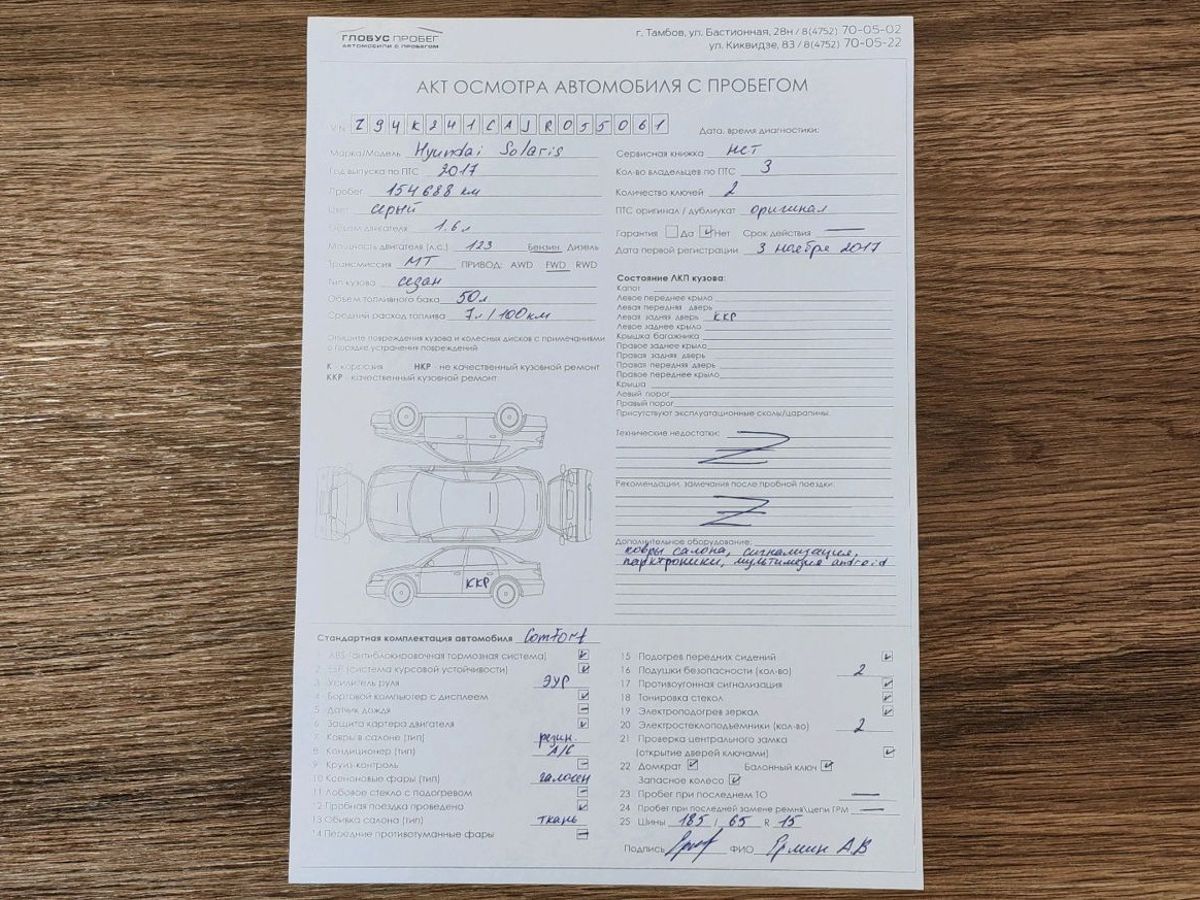 ГЛОБУС ПРОБЕГ
АВТОМОБИЛИ С ПРОБЕГОМ
г. Тамбов, ул. Бастионная, 28н / 8(4752) 70-05-02
ул. Киквидзе, 83 / 8(4752) 70-05-22
АКТ ОСМОТРА АВТОМОБИЛЯ С ПРОБЕГОМ
VIN Z94K241CAJR055061
Дата, время диагностики:
Марка/Модель Hyundai Solaris
Год выпуска по ПТС 2017
Пробег 154688 км
Цвет серый
Объем двигателя 1.6 л
Мощность двигателя (л.с.) 123 Бензин Дизель
Трансмиссия МТ ПРИВОД: AWD FWD RWD
Тип кузова седан
Объем топливного бака 50 л
Средний расход топлива 7л/100км
Сервисная книжка нет
Кол-во владельцев по ПТС 3
Количество ключей 2
ПТС оригинал / дубликат оригинал
Гарантия Да Нет Срок действия —
Дата первой регистрации 3 ноября 2017
Опишите повреждения кузова и колесных дисков с примечаниями
о порядке устранения повреждений
К - коррозия НКР - не качественный кузовной ремонт
ККР - качественный кузовной ремонт
ККР
Состояние ЛКП кузова:
Капот
Левое переднее крыло
Левая передняя дверь
Левая задняя дверь ККР
Левое заднее крыло
Крышка багажника
Правое заднее крыло
Правая задняя дверь
Правая передняя дверь
Правое переднее крыло
Крыша
Левый порог
Правый порог
Присутствуют эксплуатационные сколы/царапины.
Технические недостатки: Z
Рекомендации, замечания после пробной поездки:
Z
Дополнительное оборудование:
ковры салона, сигнализация,
парктроники, мультимедиа android
Стандартная комплектация автомобиля Comfort
1 ABS (антиблокировочная тормозная система)
2 ESP (система курсовой устойчивости)
3 Усилитель руля ЭУР
4 Бортовой компьютер с дисплеем
5 Датчик дождя
6 Защита картера двигателя
7 Ковры в салоне (тип) резин.
8 Кондиционер (тип) A/C
9 Круиз-контроль
10 Ксеноновые фары (тип) галоген
11 Лобовое стекло с подогревом
12 Пробная поездка проведена
13 Обивка салона (тип) ткань
14 Передние противотуманные фары
15 Подогрев передних сидений
16 Подушки безопасности (кол-во) 2
17 Противоугонная сигнализация
18 Тонировка стекол
19 Электроподогрев зеркал
20 Электростеклоподъемники (кол-во) 2
21 Проверка центрального замка
(открытие дверей ключами)
22 Домкрат Балонный ключ
Запасное колесо
23 Пробег при последнем ТО —
24 Пробег при последней замене ремня\цепи ГРМ —
25 Шины 185 / 65 R 15
Подпись ФИО Ярмин А.В